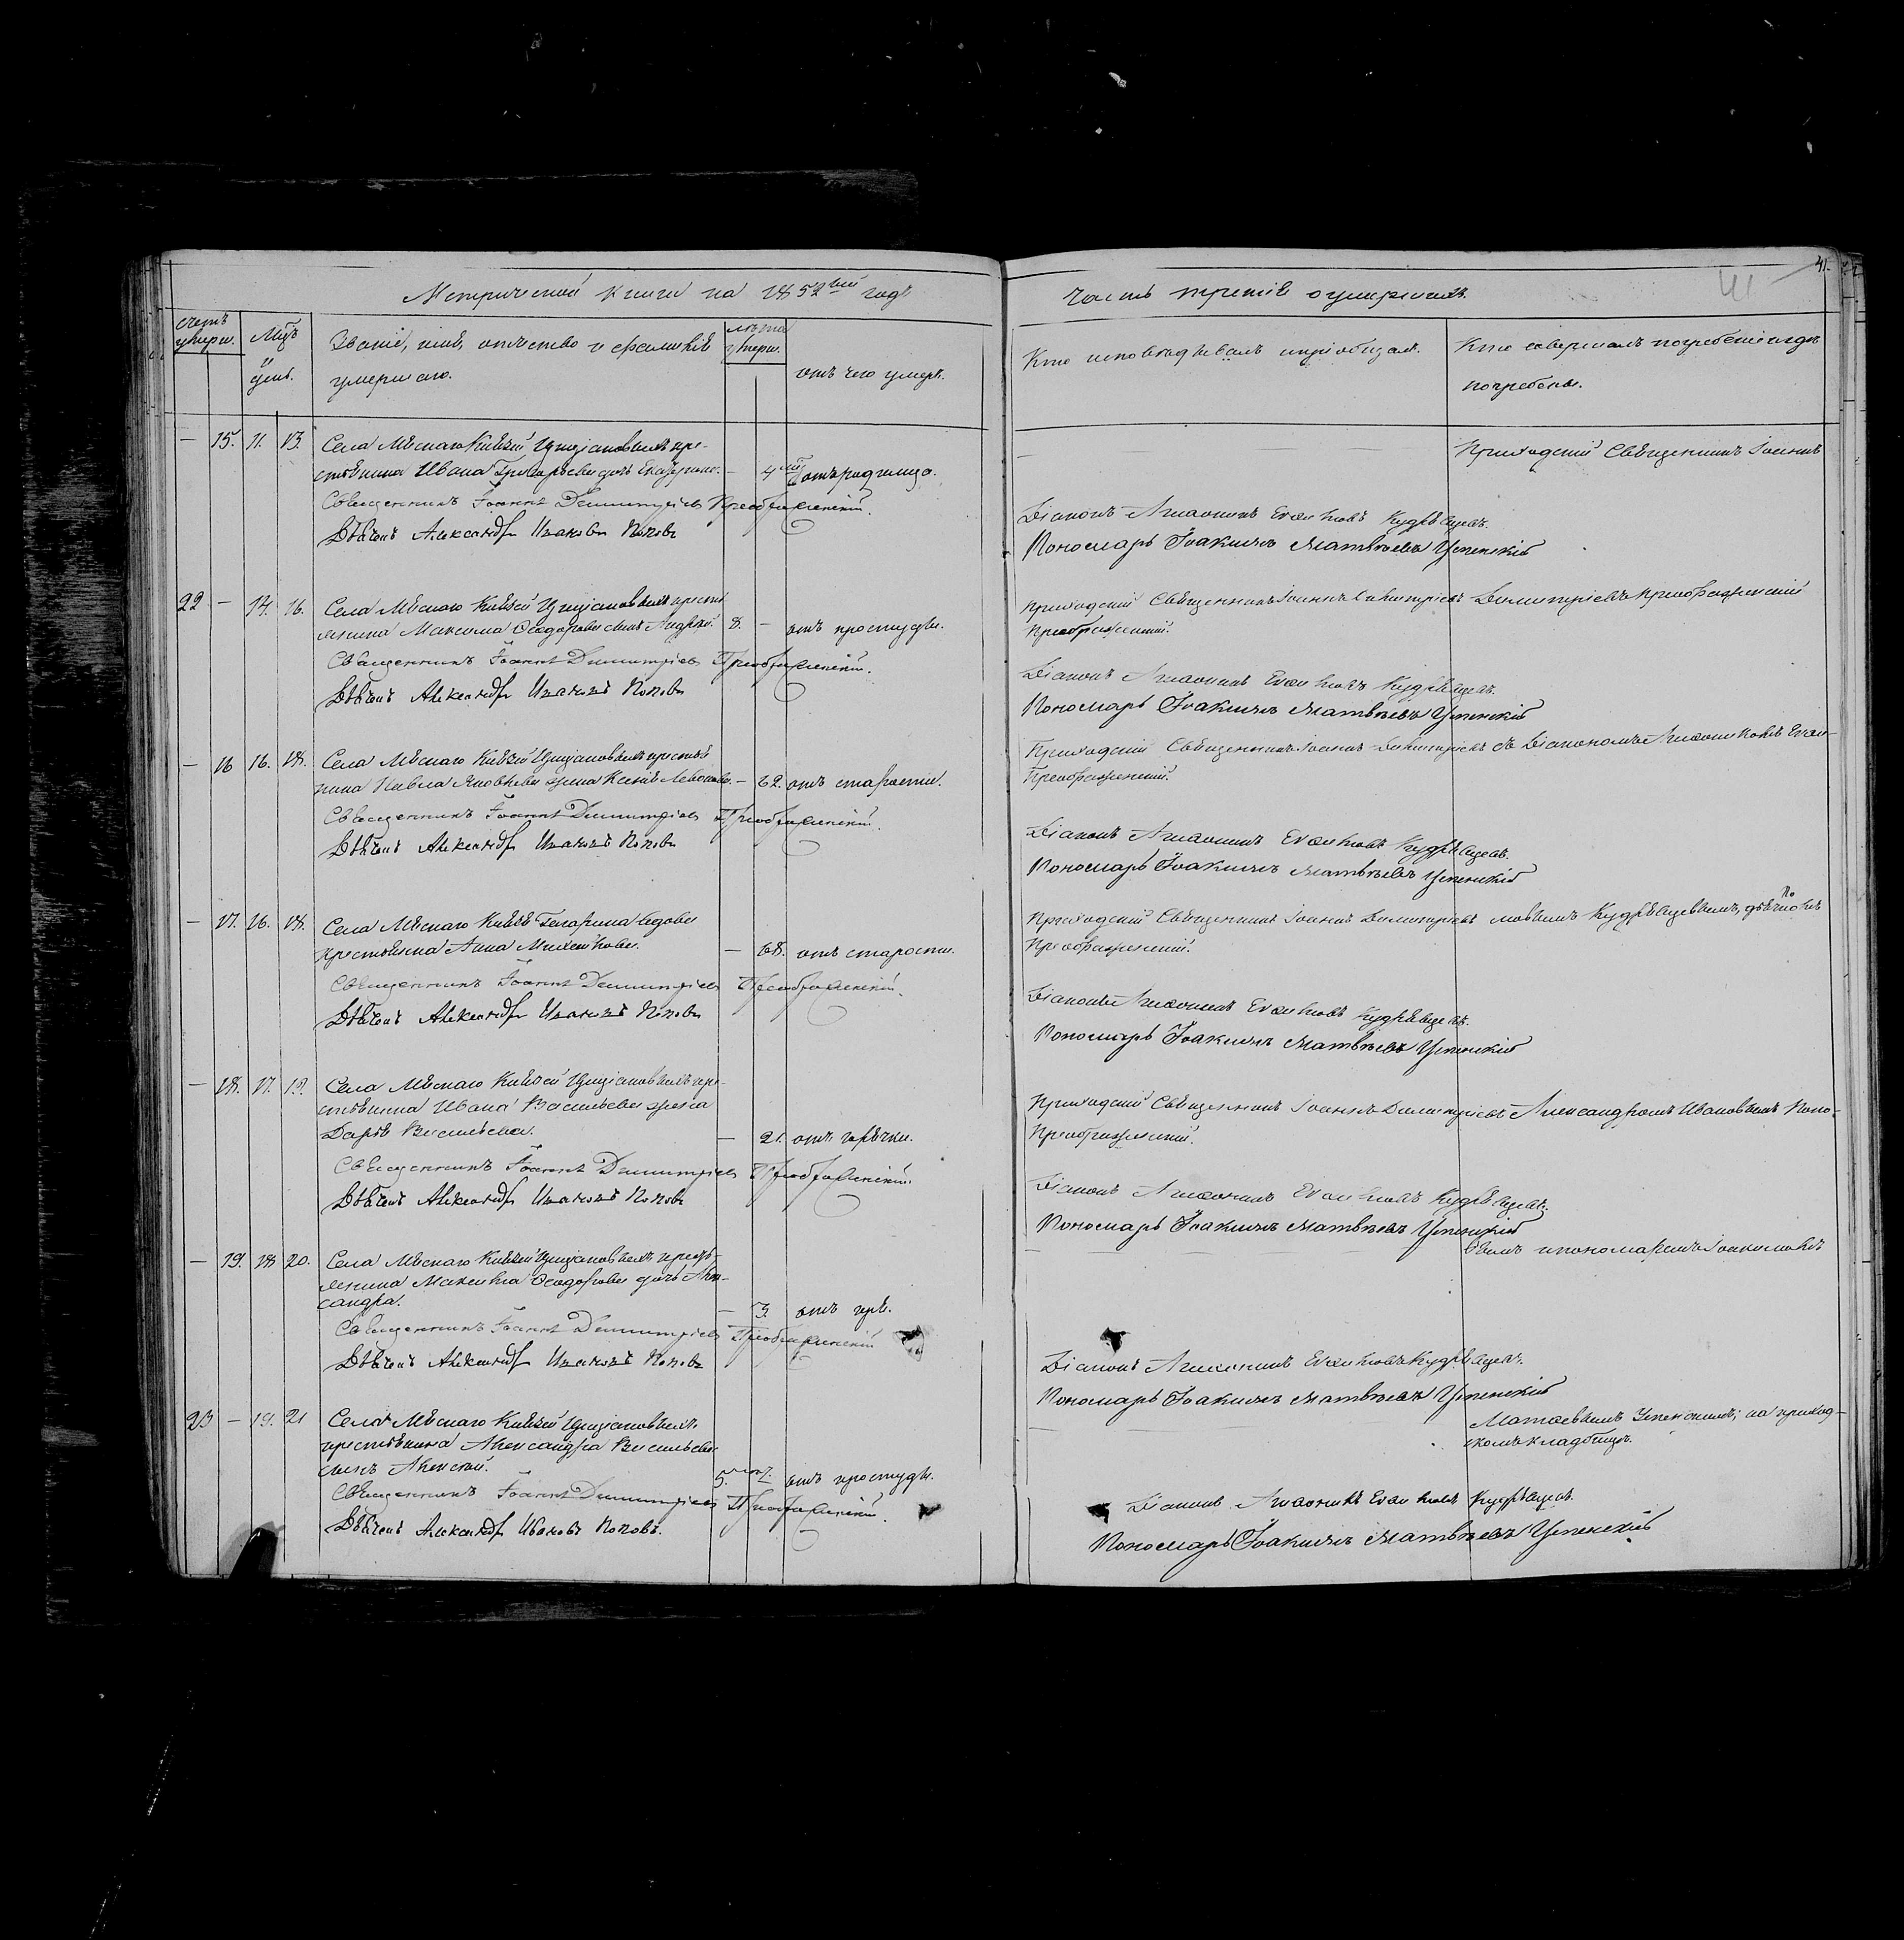 Метрической книги на 1852ый годъ
часть третія о умершихъ.
41.
41
счетъ умерш.
Мцъ и день.
Званіе, имя, отчество и фамилія
умершаго.
лѣта умерш.
отъ чего умеръ.
Кто исповѣдывалъ и пріобщалъ.
Кто совершалъ погребеніе и гдѣ
погребены.
— 15. 11. 13. Села Мѣснаго Князей Циціановыхъ кре-
стьянина Ивана Григорьева дочь Екатерина. — 4 отъ родимца.
— Приходскій Священникъ Іоаннъ
Священникъ Іоаннъ Димитріевъ Преображенскій.
Дьячекъ Александръ Ивановъ Поповъ
Діаконъ Кудрявцевъ.
Пономарь Іоакимъ Матвѣевъ Успенскій
22 — 14. 16. Села Мѣснаго Князей Циціановыхъ кресть
янина Максима Ѳеодорова сынъ Андрей. 8. — отъ простуды.
Приходскій Священникъ Іоаннъ Димитріевъ
Преображенскій.
Димитріевъ Преображенскій
Священникъ Іоаннъ Димитріевъ Преображенскій.
Дьячекъ Александръ Ивановъ Поповъ
Діаконъ Кудрявцевъ.
Пономарь Іоакимъ Матвѣевъ Успенскій
— 16 16. 18. Села Мѣснаго Князей Циціановыхъ крестья
нина Павла Яковлева жена Ксенія — 62. отъ старости.
Приходскій Священникъ Іоаннъ Димитріевъ
Преображенскій.
съ Діакономъ
Священникъ Іоаннъ Димитріевъ Преображенскій.
Дьячекъ Александръ Ивановъ Поповъ
Діаконъ Кудрявцевъ.
Пономарь Іоакимъ Матвѣевъ Успенскій
— 17. 16. 18. Села Мѣснаго Князя Гагарина вдова
крестьянка Анна Михайлова. — 68. отъ старости.
Приходскій Священникъ Іоаннъ Димитріевъ
Преображенскій.
ловымъ Кудрявцевымъ, дьячкомъ
Священникъ Іоаннъ Димитріевъ Преображенскій.
Дьячекъ Александръ Ивановъ Поповъ
Діаконъ Кудрявцевъ.
Пономарь Іоакимъ Матвѣевъ Успенскій
— 18. 17. 19. Села Мѣснаго Князей Циціановыхъ кре-
стьянина Ивана Васильева жена
Дарья Васильева. — 21. отъ горячки.
Приходскій Священникъ Іоаннъ Димитріевъ
Преображенскій.
Александромъ Ивановымъ Попо-
Священникъ Іоаннъ Димитріевъ Преображенскій.
Дьячекъ Александръ Ивановъ Поповъ
Діаконъ Кудрявцевъ.
Пономарь Іоакимъ Матвѣевъ Успенскій
— 19. 18 20. Села Мѣснаго Князей Циціановыхъ кресть-
янина Максима Ѳеодорова дочь Алек-
сандра. — 3. отъ
— вымъ и пономаремъ Іоакимомъ
Священникъ Іоаннъ Димитріевъ Преображенскій
Дьячекъ Александръ Ивановъ Поповъ
Діаконъ Кудрявцевъ.
Пономарь Іоакимъ Матвѣевъ Успенскій
23 — 19. 21 Села Мѣснаго Князей Циціановыхъ
крестьянина Александра Васильева
сынъ Алексѣй. 5. отъ простуды.
— Матѳевымъ Успенскимъ; на приход-
скомъ кладбищѣ.
Священникъ Іоаннъ Димитріевъ Преображенскій.
Дьячекъ Александръ Ивановъ Поповъ.
Діаконъ Кудрявцевъ.
Пономарь Іоакимъ Матвѣевъ Успенскій